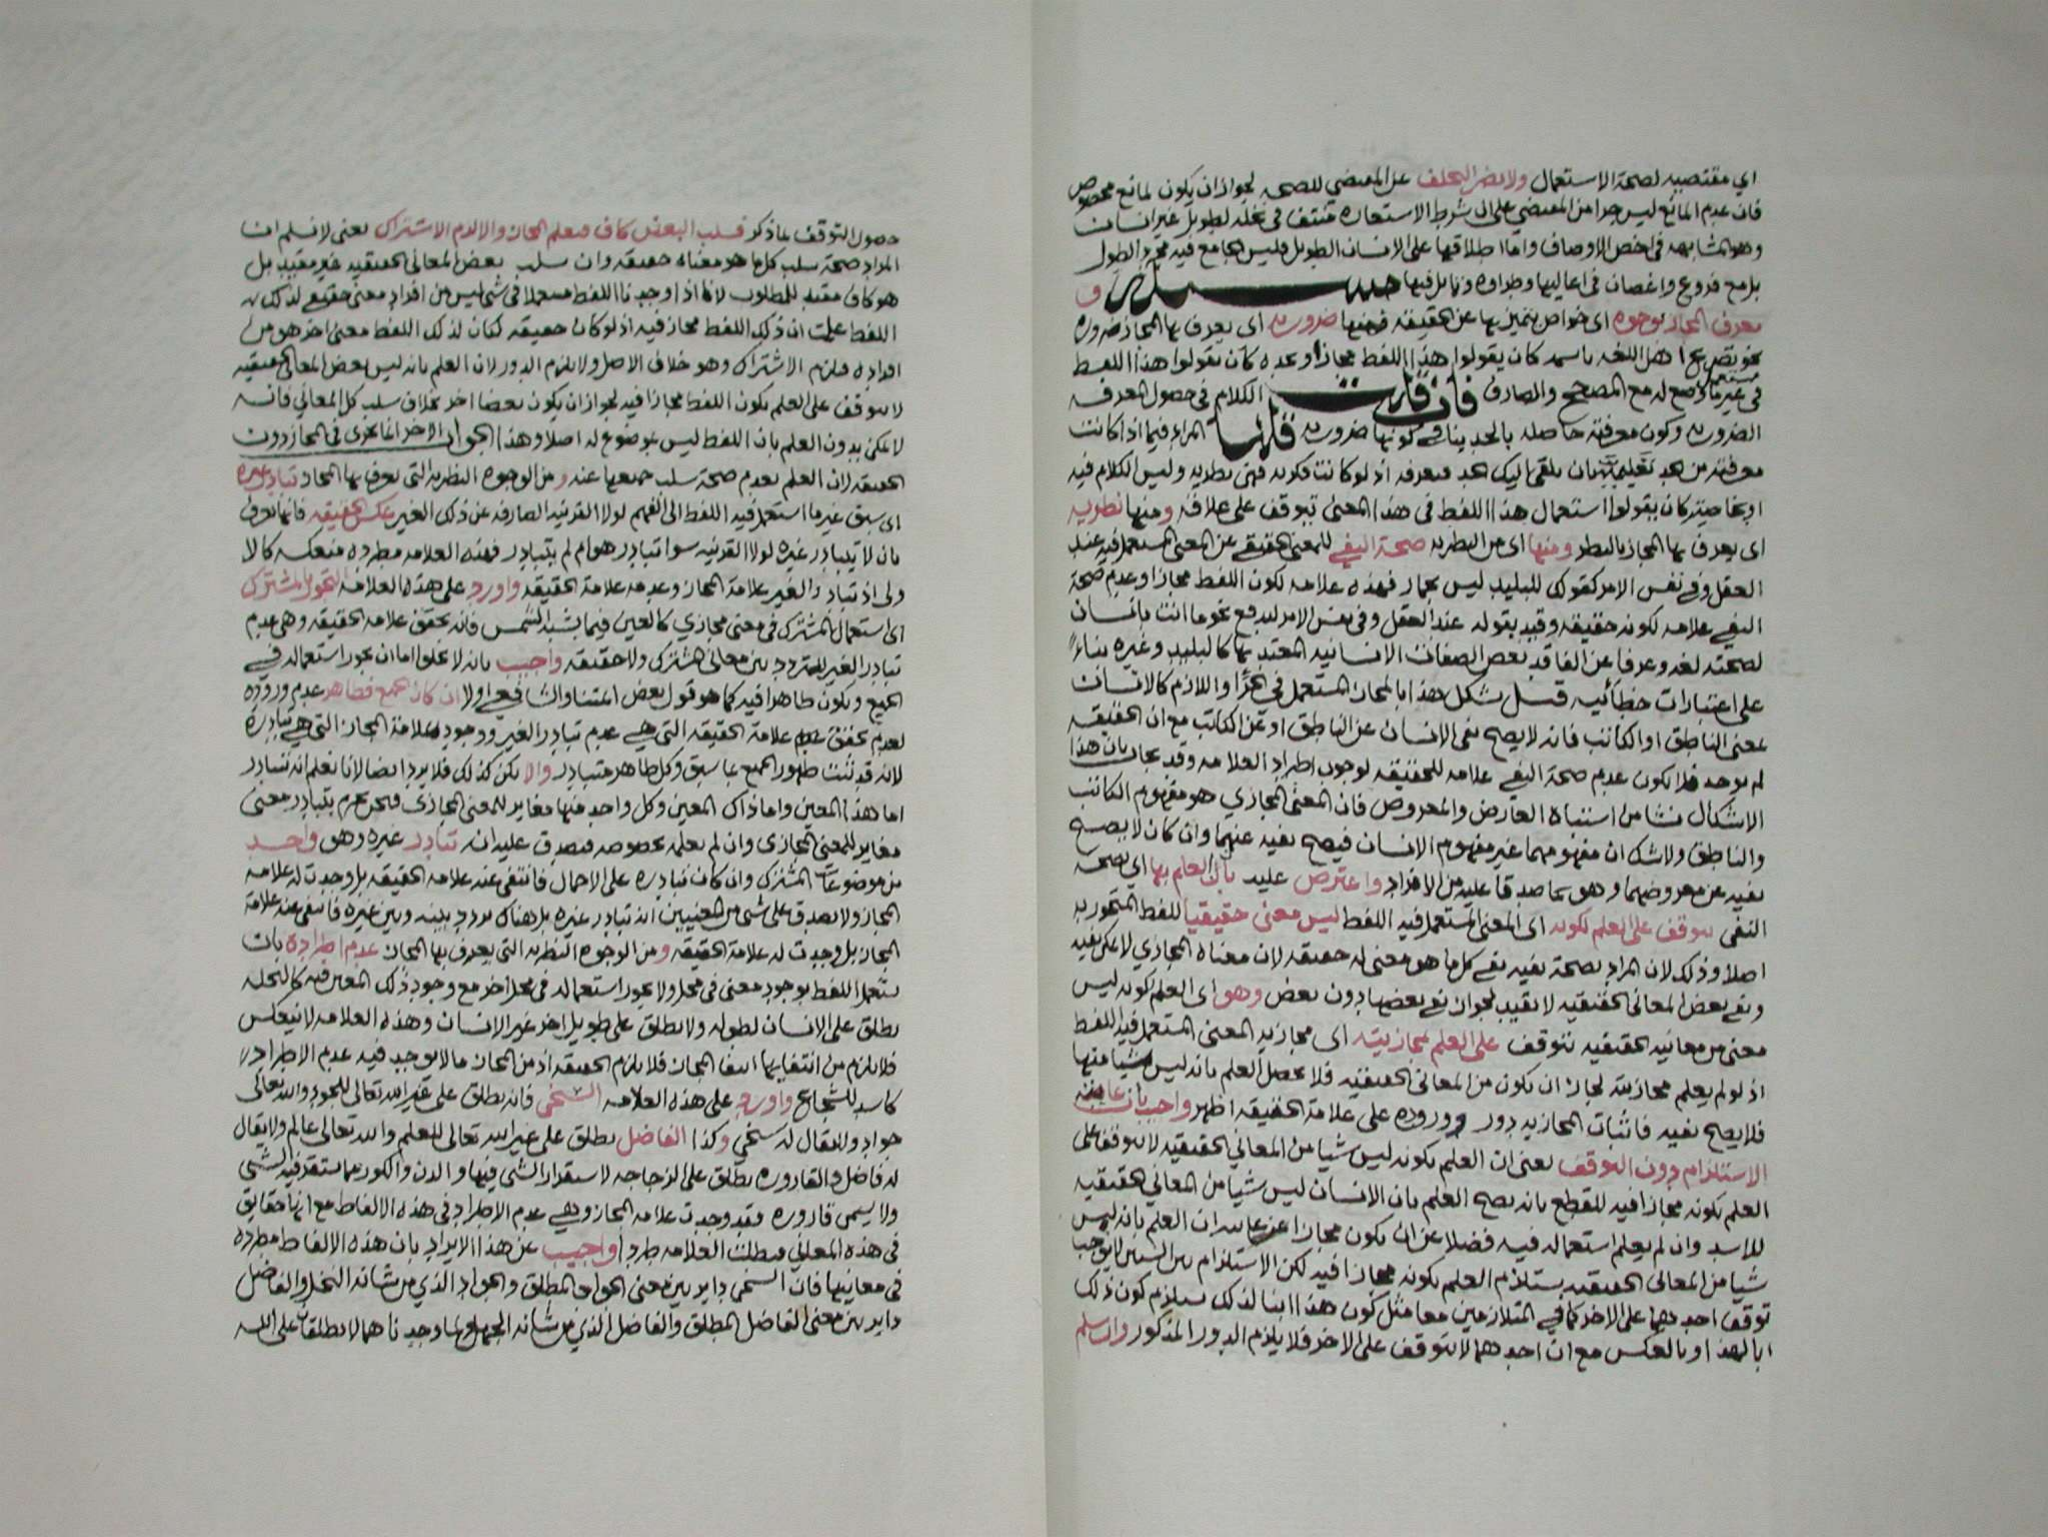 اي مقتضيه لصحة الاستعمال ولا يضر التخلف عن المقتضي للصحه لجواز ان يكون لمانع مخصوص
فان عدم المانع ليس جزا من المقتضي على ان شرط الاستعاره منتف في نخله لطويل غير انسان
وهو المشابهه في اخص الاوصاف واما اطلاقها على الانسان الطويل فليس الجامع فيه مجرد الطول
بل مع فروع واغصان في اعاليها وطراوه وتمايل فيها مسئله و
يعرف المجاز بوجوه اى خواص يتميز بها عن الحقيقه فمنها ضروريه اى يعرف بها المجاز ضروره
نحو تصريح اهل اللغه باسمه كان يقولوا هذا اللفظ مجاز او بحده كان يقولوا هذا اللفظ مستعمل
في غير ما وضع له مع المصحح والصارف فان قلت الكلام في حصول المعرفه
الضروريه وكون معرفته حاصله بالحد ينافي كونها ضروريه قلنا المراد فيما اذا كانت
معرفته من بعد تعليميه بان يلقى اليك الحد فتعرفه اذ لو كانت فكريه فهي نظريه وليس الكلام فيه
او بخاصيته كان يقولوا استعمال هذا اللفظ في هذا المعنى يتوقف على علاقه ومنها نظريه
اى يعرف بها المجاز بالنظر ومنها اى من النظريه صحة النفي للمعنى الحقيقي عن المعنى المستعمل فيه عند
العقل وفي نفس الامر كقولك للبليد ليس بحمار فهذه علامه لكون اللفظ مجازا وعدم صحة
النفي علامه لكونه حقيقه وقيد بقوله عند العقل وفي نفس الامر ليدفع نحو ما انت بانسان
لصحته لغه وعرفا عن الفاقد بعض الصفات الانسانيه المعتد بها كالبليد وغيره بناء
على اعتبارات خطابيه قيل يشكل هذا بالمجاز المستعمل في الجزا واللازم كالانسان
بمعنى الناطق او الكاتب فانه لا يصح نفي الانسان عن الناطق او عن الكاتب مع ان الحقيقه
لم توجد فلا يكون عدم صحة النفي علامه للحقيقه لوجوب اطراد العلامه وقد يجاب بان هذا
الاشكال نشا من اشتباه العارض والمعروض فان المعنى المجازي هو مفهوم الكاتب
والناطق ولا شك ان مفهومهما غير مفهوم الانسان فيصح نفيه عنهما وان كان لا يصح
نفيه عن معروضهما وهو ما صدقا عليه من الافراد واعترض عليه بان العلم بها اى بصحة
النفي يتوقف على العلم بكونه اى المعنى المستعمل فيه اللفظ ليس معنى حقيقيا للفظ المتجوز به
اصلا وذلك لان المراد بصحة نفيه نفي كل ما هو معنى له حقيقه لان معناه المجازي لا يمكن نفيه
ونفي بعض المعاني الحقيقيه لا يفيد لجواز نفي بعضها دون بعض وهو اى العلم بكونه ليس
معنى من معانيه الحقيقيه يتوقف على العلم بمجازيته اى مجازية المعنى المستعمل فيه اللفظ
اذ لو لم يعلم مجازيته لجاز ان يكون من المعاني الحقيقيه فلا يحصل العلم بانه ليس شيا منها
فلا يصح نفيه فاثبات المجازيه به دور ووروده على علامة الحقيقه اظهر واجيب بان غايته
الاستلزام دون التوقف يعنى ان العلم بكونه ليس شيا من المعاني الحقيقيه لا يتوقف على
العلم بكونه مجازا فيه للقطع بانه يصح العلم بان الانسان ليس شيا من المعاني الحقيقيه
للاسد وان لم يعلم استعماله فيه فضلا عن ان يكون مجازا غايته ان العلم بانه ليس
شيا من المعاني الحقيقيه يستلزم العلم بكونه مجازا فيه لكن الاستلزام بين الشيين لا يوجب
توقف احدهما على الاخر كما في المتلازمين معا مثل كون هذا ابنا لذلك يستلزم كون ذلك
ابا لهذا وبالعكس مع ان احدهما لا يتوقف على الاخر فلا يلزم الدور المذكور وان سلم
حصول التوقف بما ذكر فسلب البعض كاف فيعلم المجاز والا لزم الاشتراك يعنى لا نسلم ان
المراد صحة سلب كل ما هو معناه حقيقه وان سلب بعض المعاني الحقيقيه غير مفيد بل
هو كاف مفيد للمطلوب لانا اذا وجدنا اللفظ مستعملا في شي ليس من افراد معنى حقيقي لذلك
اللفظ علمت ان ذلك اللفظ مجاز فيه اذ لو كان حقيقه لكان لذلك اللفظ معنى اخر هو من
افراده فيلزم الاشتراك وهو خلاف الاصل ولا يلزم الدور لان العلم بانه ليس بعض المعاني الحقيقيه
لا يتوقف على العلم بكون اللفظ مجازا فيه لجواز ان يكون بعضا اخر بخلاف سلب كل المعاني فانه
لا يمكن بدون العلم بان اللفظ ليس بموضوع له اصلا وهذا الجواب الاخر انما يجرى في المجاز دون
الحقيقه لان العلم بعدم صحة سلب جميعها عنه ومن الوجوه النظريه التي يعرف بها المجاز تبادر غيره
اى سبق غير ما استعمل فيه اللفظ الى الفهم لولا القرينه الصارفه عن ذلك الغير عكس الحقيقه فانها تعرف
بان لا يتبادر غيره لولا القرينه سوا تبادر هو ام لم يتبادر فهذه العلامه مطرده منعكسه كالا
ولى اذ تبادر الغير علامة المجاز وعدمه علامة الحقيقه واورد على هذه العلامه التجوز بالمشترك
اى استعمال المشترك في معنى مجازي كالعين فيما يشبه الشمس فانه تحقق علامه الحقيقه وهي عدم
تبادر الغير للتردد بين معاني المشترك ولا حقيقه واجيب بانه لا يخلو اما ان يجوز استعماله في
الجميع ويكون ظاهرا فيه كما هو قول بعض ائمتنا والشافعي او لا ان كان الجميع فظاهر عدم وروده
لعدم تحقق علامة الحقيقه التي هي عدم تبادر الغير ووجود علامة المجاز التي هي تبادره
لانه قد ثبت ظهور الجميع بما سبق وكل ظاهر متبادر والا يكن كذلك فلا يرد ايضا لانا نعلم انه تتبادر
اما هذا المعين واما ذاك المعين وكل واحد منها مغاير للمعنى المجازي فنحن نجزم بتبادر معنى
مغاير للمعنى المجازى وان لم نعلمه بخصوصه فيصدق عليه انه تبادر غيره وهو واحد
من موضوعات المشترك وان كان تبادره على الاجمال فانتفى عنه علامه الحقيقه بل وجدت له علامه
المجاز ولا يصدق على شي من المعنيين انه تبادر غيره بل هناك تردد بينه وبين غيره فانتفى عنه علامة
المجاز بل وجدت له علامة الحقيقه ومن الوجوه النظريه التي يعرف بها المجاز عدم اطراده بان
يستعمل اللفظ لوجود معنى في محل ولا يجوز استعماله في محل اخر مع وجود ذلك المعنى فيه كالنخله
يطلق على الانسان لطوله ولا يطلق على طويل اخر غير الانسان وهذه العلامه لا تنعكس
فلا يلزم من انتفايها انتفا المجاز فلا يلزم الحقيقه اذ من المجاز ما لا يوجد فيه عدم الاطراد
كاسد للشجاع واورد على هذه العلامه السخي فانه يطلق على غير الله تعالى للجود والله تعالى
جواد ولا يقال له سخي وكذا الفاضل يطلق على غير الله تعالى للعلم والله تعالى عالم ولا يقال
له فاضل والقاروره يطلق على الزجاجه لاستقرار الشي فيها والدن والكوز مما يستقر فيه الشي
ولا يسمى قاروره فقد وجدت علامه المجاز وهي عدم الاطراد في هذه الالفاظ مع انها حقايق
في هذه المعاني فبطلت العلامه طردا واجيب عن هذا الايراد بان هذه الالفاظ مطرده
في معانيها فان السخي داير بين معنى الجواد المطلق والجواد الذي من شانه البخل والفاضل
داير بين معنى الفاضل المطلق والفاضل الذي من شانه الجهل ولما وجدناهما لا يطلقان على الله